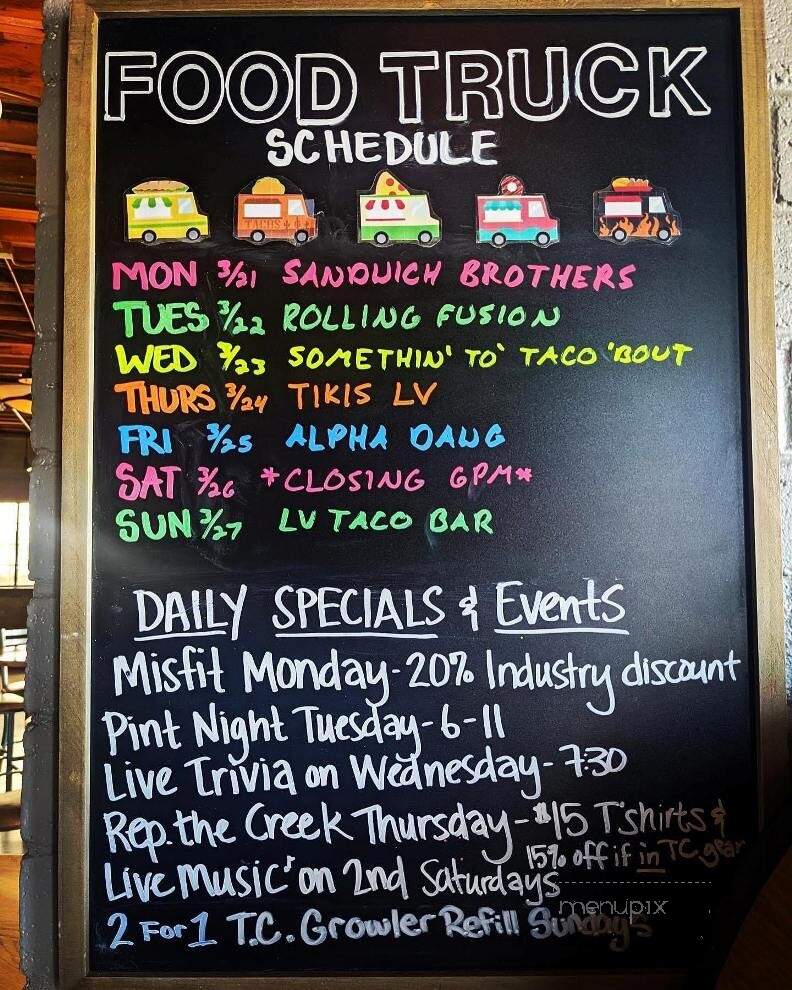 FOOD TRUCK
SCHEDULE
TACOS
MON 3/21 SANDWICH BROTHERS
TUES 3/22 ROLLING FUSION
WED 3/23 SOMETHIN' TO' TACO 'BOUT
THURS 3/24 TIKIS LV
FRI 3/25 ALPHA DAWG
SAT 3/26 *CLOSING 6PM*
SUN 3/27 LV TACO BAR
DAILY SPECIALS & Events
Misfit Monday-20% Industry discount
Pint Night Tuesday-6-11
Live Trivia on Wednesday-7:30
Rep. the Creek Thursday-$15 T'shirts &
15% off if in TC gear
Live Music on 2nd Saturdays
menupix
2 For 1 T.C. Growler Refill Sundays